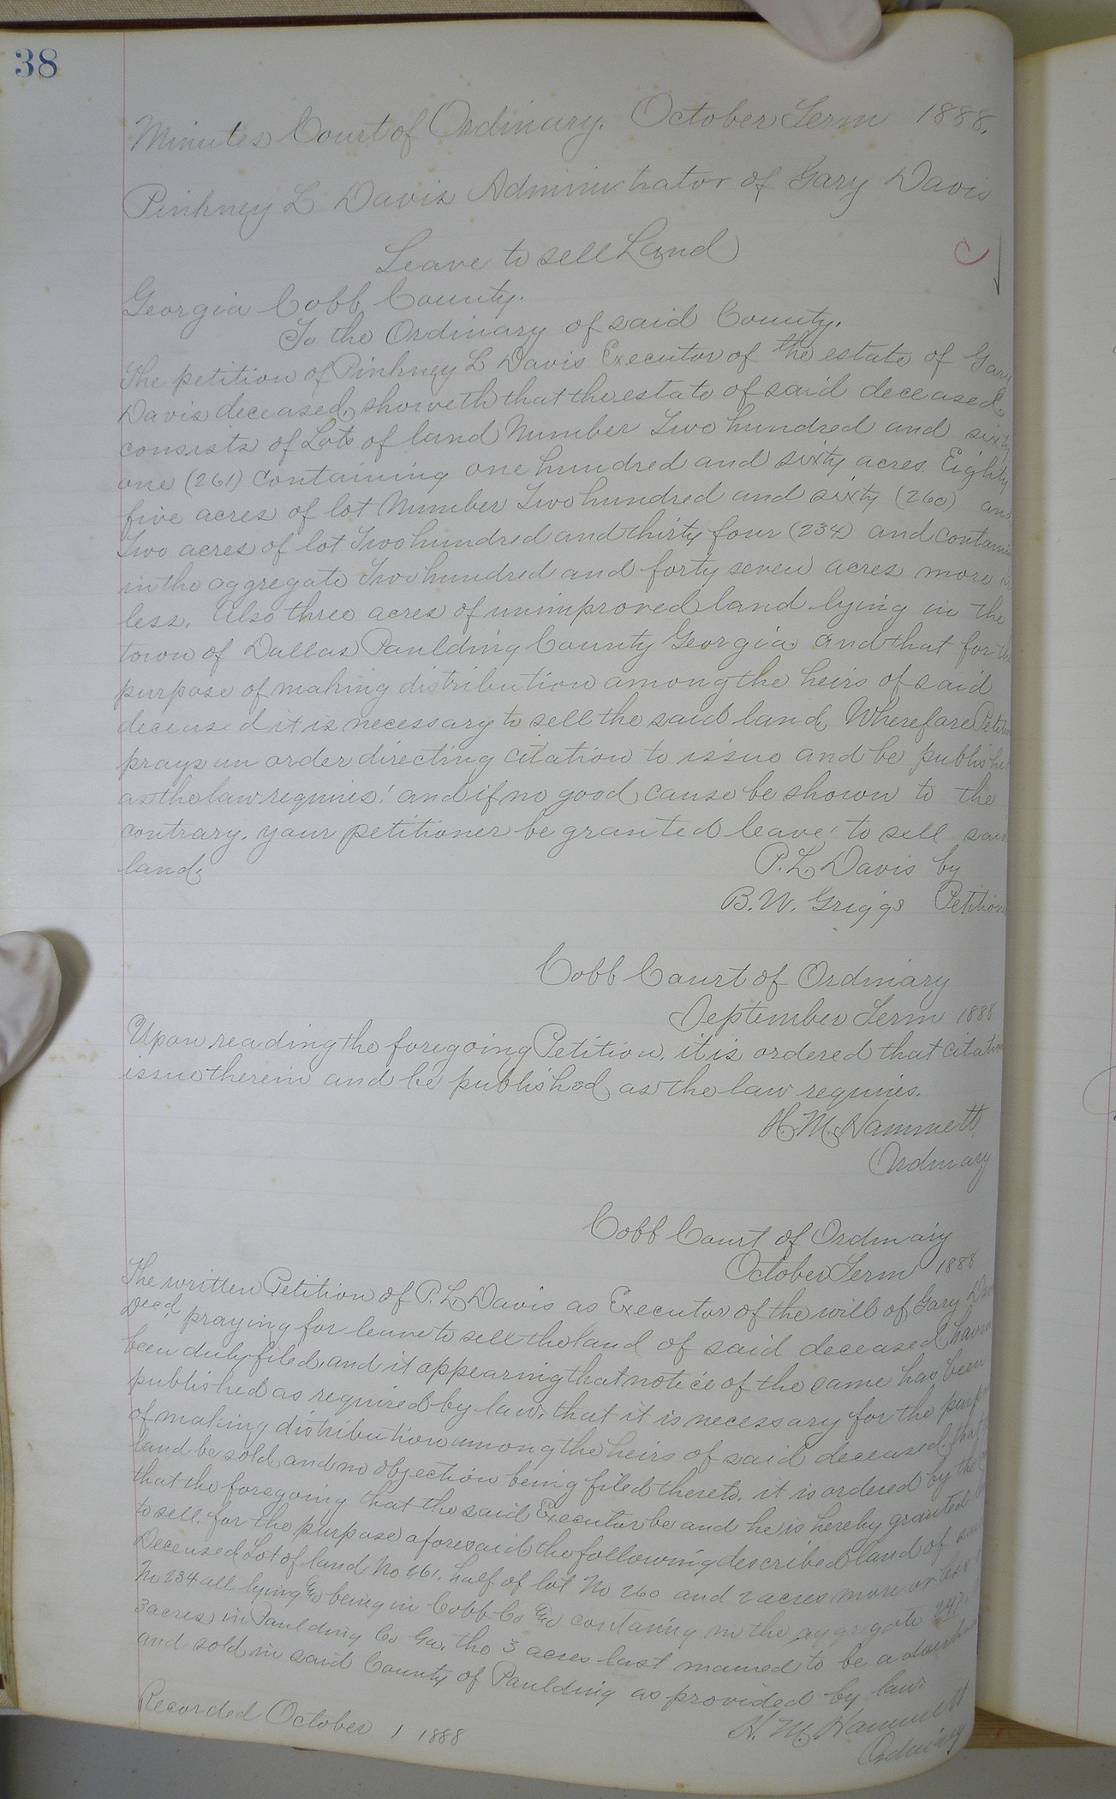 38
Minutes Court of Ordinary. October Term 1888.
Pinkney L Davis Administrator of Gary Davis
Leave to sell Land
C
Georgia Cobb County.
To the Ordinary of said County.
The petition of Pinkney L Davis Executor of the estate of Gary
Davis deceased, showeth that the estate of said deceased
consists of Lots of land Number Two hundred and sixty
one (261) Containing one hundred and sixty acres. Eighty
five acres of lot Number Two hundred and sixty (260) and
Two acres of lot Two hundred and thirty four (234) and contain
in the aggregate Two hundred and forty seven acres more or
less. Also three acres of unimproved land lying in the
town of Dallas Paulding County Georgia and that for the
purpose of making distribution among the heirs of said
deceased it is necessary to sell the said land. Wherefore Petition
prays an order directing citation to issue and be published
as the law requires: and if no good cause be shown to the
contrary. your petitioner be granted leave to sell said
land.
P. L. Davis by
B. W. Griggs Petition
Cobb Court of Ordinary
September Term 1888
Upon reading the foregoing Petition. it is ordered that citation
issue therein and be published as the law requires.
H. M. Hammett
Ordinary
Cobb Court of Ordinary
October Term 1888
The written Petition of P. L. Davis as Executor of the will of Gary Davis
Decd, praying for leave to sell the land of said deceased having
been duly filed, and it appearing that notice of the same has been
published as required by law, that it is necessary for the purp
of making distribution among the heirs of said deceased that
land be sold, and no objection being filed thereto. it is ordered by the
that the foregoing that the said Executor be and he is hereby granted
to sell. for the purpose aforesaid the following described land of said
Deceased Lot of land No 261. half of lot No 260 and 2 acres more or less
No 234 all lying & being in Cobb Co & containing in the aggregate 247.
3 acres in Paulding Co Ga. the 3 acres last named to be advertised
and sold in said County of Paulding as provided by law.
H. M. Hammett
Ordinary
Recorded October 1 1888